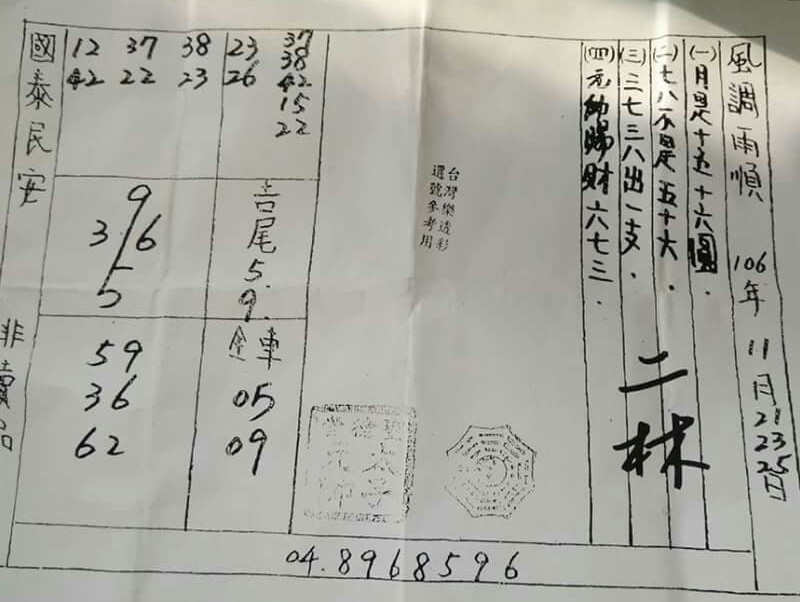 風調雨順 106年 11月21 23 25日
(一)月是十五十六圓.
(二)七八不是五十六.
(三)三七三八出一支.
(四)元帥賜財六七三.
二林
台灣樂透彩
選號參考用
37
38
42
15
22
23
26
12 37 38
42 22 23
吉尾
5.
9.
9
3/6
5
連車
05
09
59
36
62
聖太子
元帥
國泰民安
非賣品
04.8968596